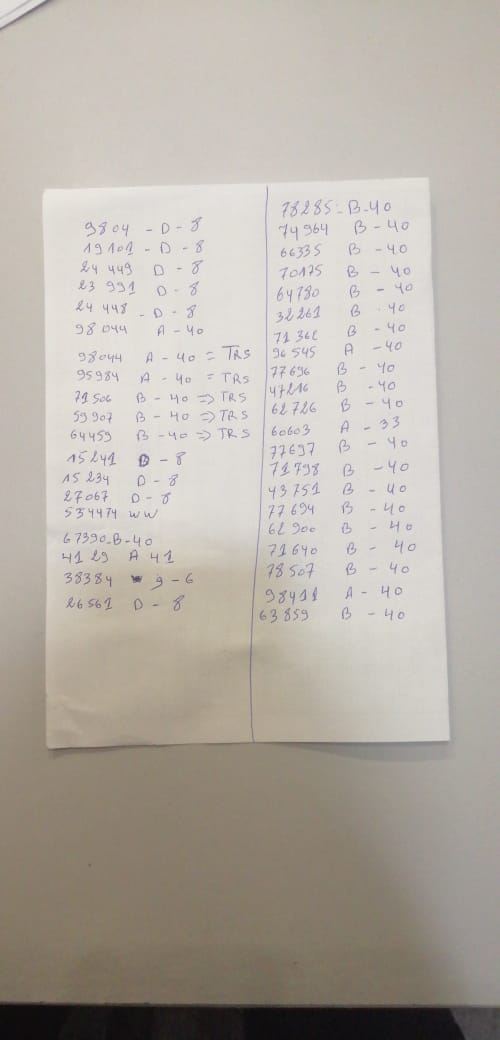 9804 - D - 8
19101 - D - 8
24 449 D - 8
23 991 D - 8
24 448 - D - 8
98 044 A - 40
98044 A - 40 = TRS
95984 A - 40 = TRS
71506 B - 40 => TRS
59907 B - 40 => TRS
64459 B - 40 => TRS
15241 D - 8
15 234 D - 8
27067 D - 8
534474 WW
67390-B-40
41 29 A 41
38384 9 - 6
26561 D - 8
78285 - B-40
74964 B - 40
66335 B - 40
70175 B - 40
64780 B - 40
32261 B - 40
B - 40
96545 A - 40
77696 B - 40
47216 B - 40
62726 B - 40
60603 A - 33
77697 B - 40
71798 B - 40
43751 B - 40
77694 B - 40
62900 B - 40
71640 B - 40
78507 B - 40
98411 A - 40
63859 B - 40